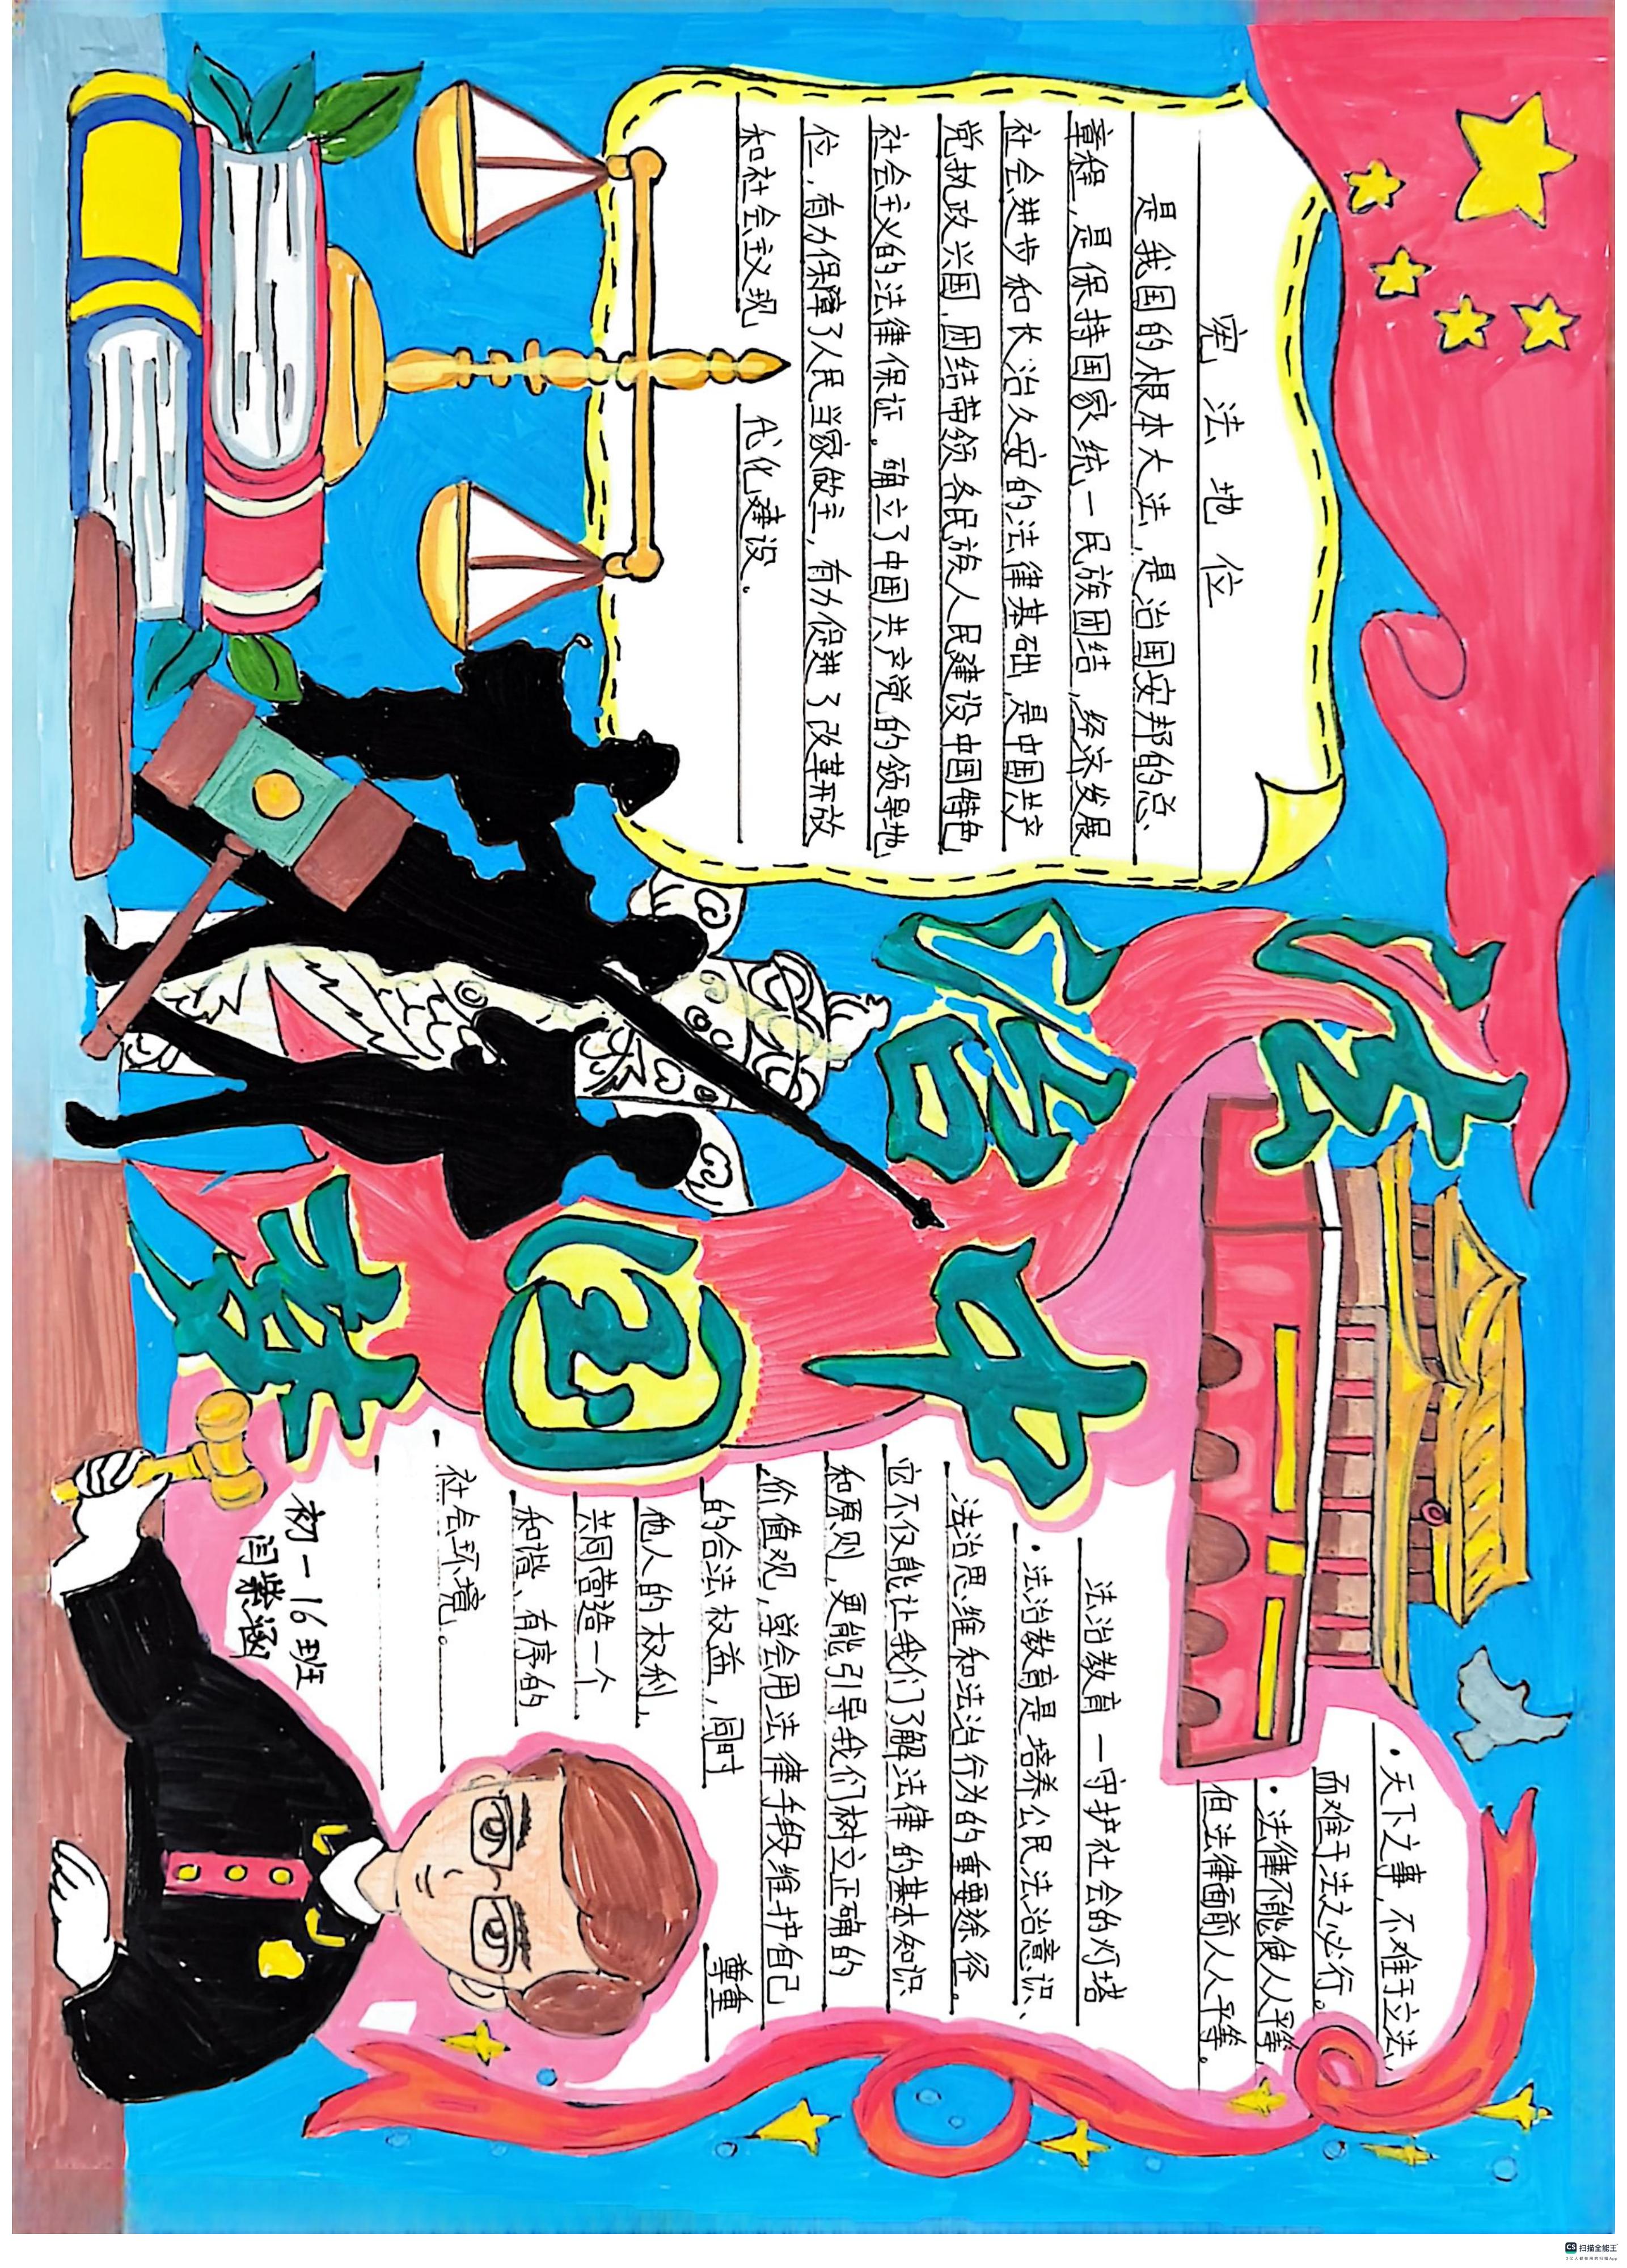 法治中国梦
宪法地位
是我国的根本大法，是治国安邦的总、
章程，是保持国家统一民族团结，经济发展
社会进步和长治久安的法律基础，是中国共产
党执政兴国，团结带领各民族人民建设中国特色
社会主义的法律保证。确立了中国共产党的领导地
位，有力保障了人民当家做主，有力促进了改革开放
和社会主义现代化建设.
·天下之事，不难于立法，
而难于法之必行。
·法律不能使人人平等，
但法律面前人人平等。
法治教育一守护社会的灯塔
·法治教育是培养公民法治意识、
法治思维和法治行为的重要途径。
它不仅能让我们了解法律的基本知识
和原则，更能引导我们树立正确的
价值观，学会用法律手段维护自己
的合法权益，同时尊重
他人的权利，
共同营造一个
和谐、有序的
社会环境。
初一16班
扫描全能王